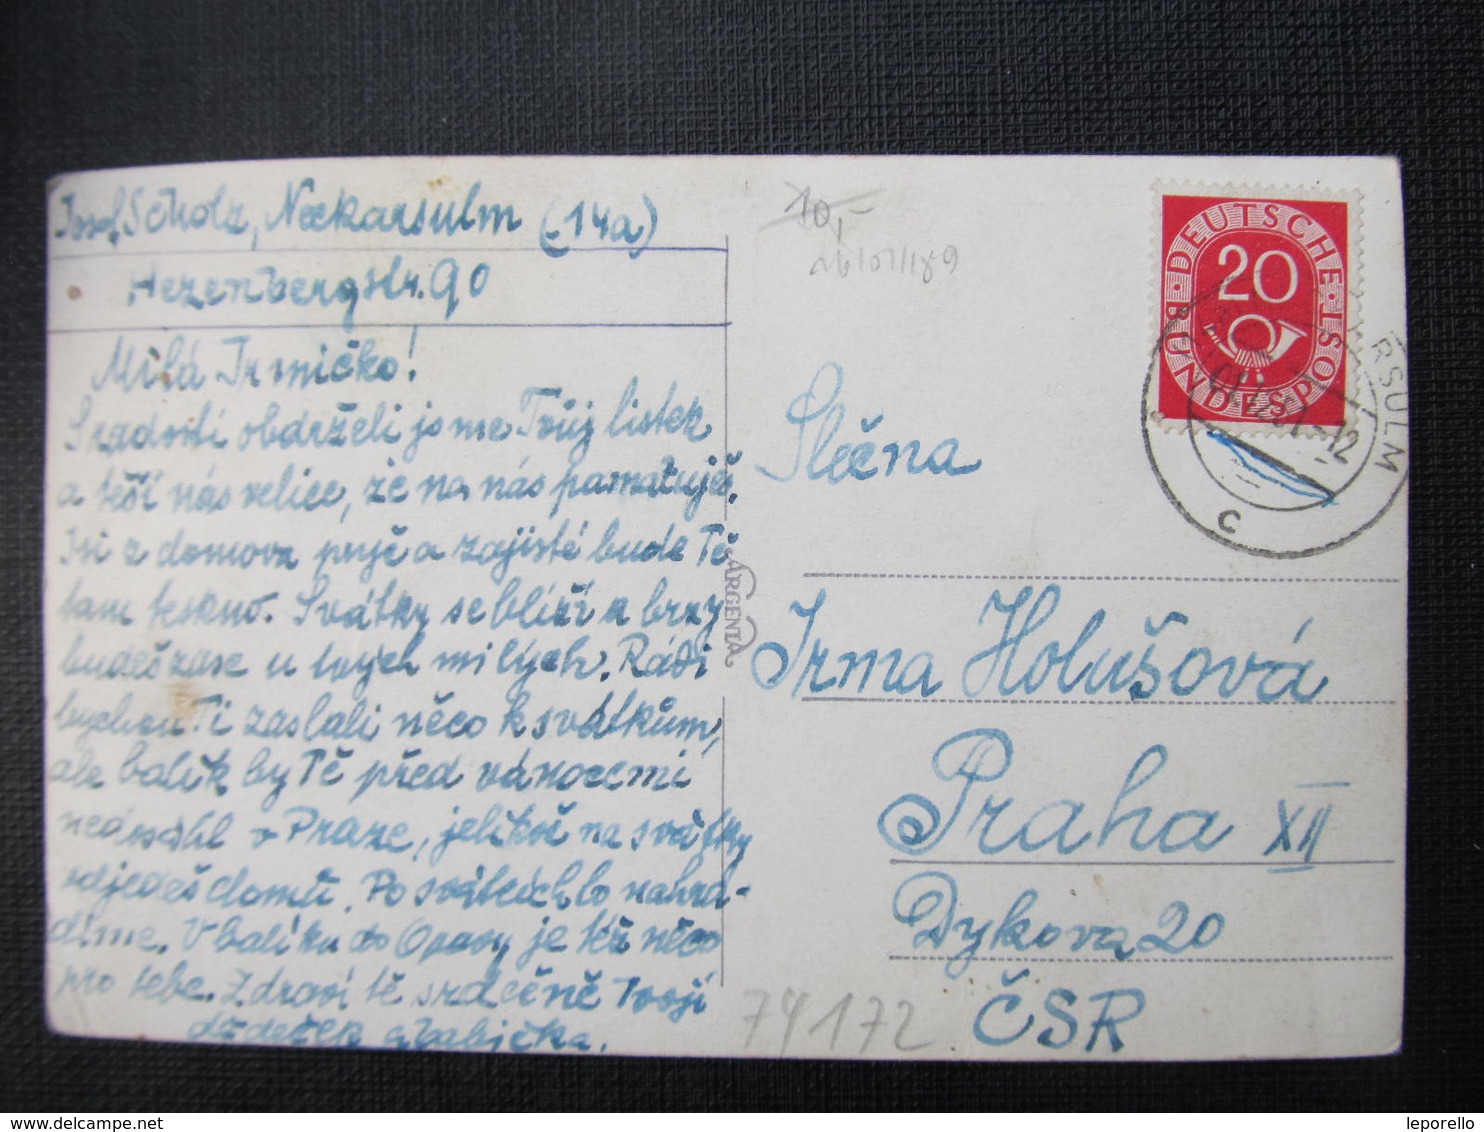 Josef Scholz, Neckarsulm (14a)
Hezenbergstr. 90
Milá Irmičko!
S radostí obdrželi jsme Tvůj lístek
a těší nás velice, že na nás pamatuješ.
Jsi z domova pryč a zajisté bude Tě
tam teskno. Svátky se blíží a brzy
budeš zase u tvých milých. Rádi
bychom Ti zaslali něco k svátkům,
ale balík by Tě před vánocemi
nedosáhl v Praze, jelikož na svátky
odjedeš domů. Po svátcích to nahra-
díme. V balíku do Opavy je též něco
pro tebe. Zdraví tě srdečně Tvoji
dědeček a babička.
ARGENTA
10,-
DEUTSCHE BUNDESPOST
20
RSULM
-12
c
Slečna
Irma Holušová
Praha XII
Dykova 20
ČSR
74172
delcampe.net
leporello